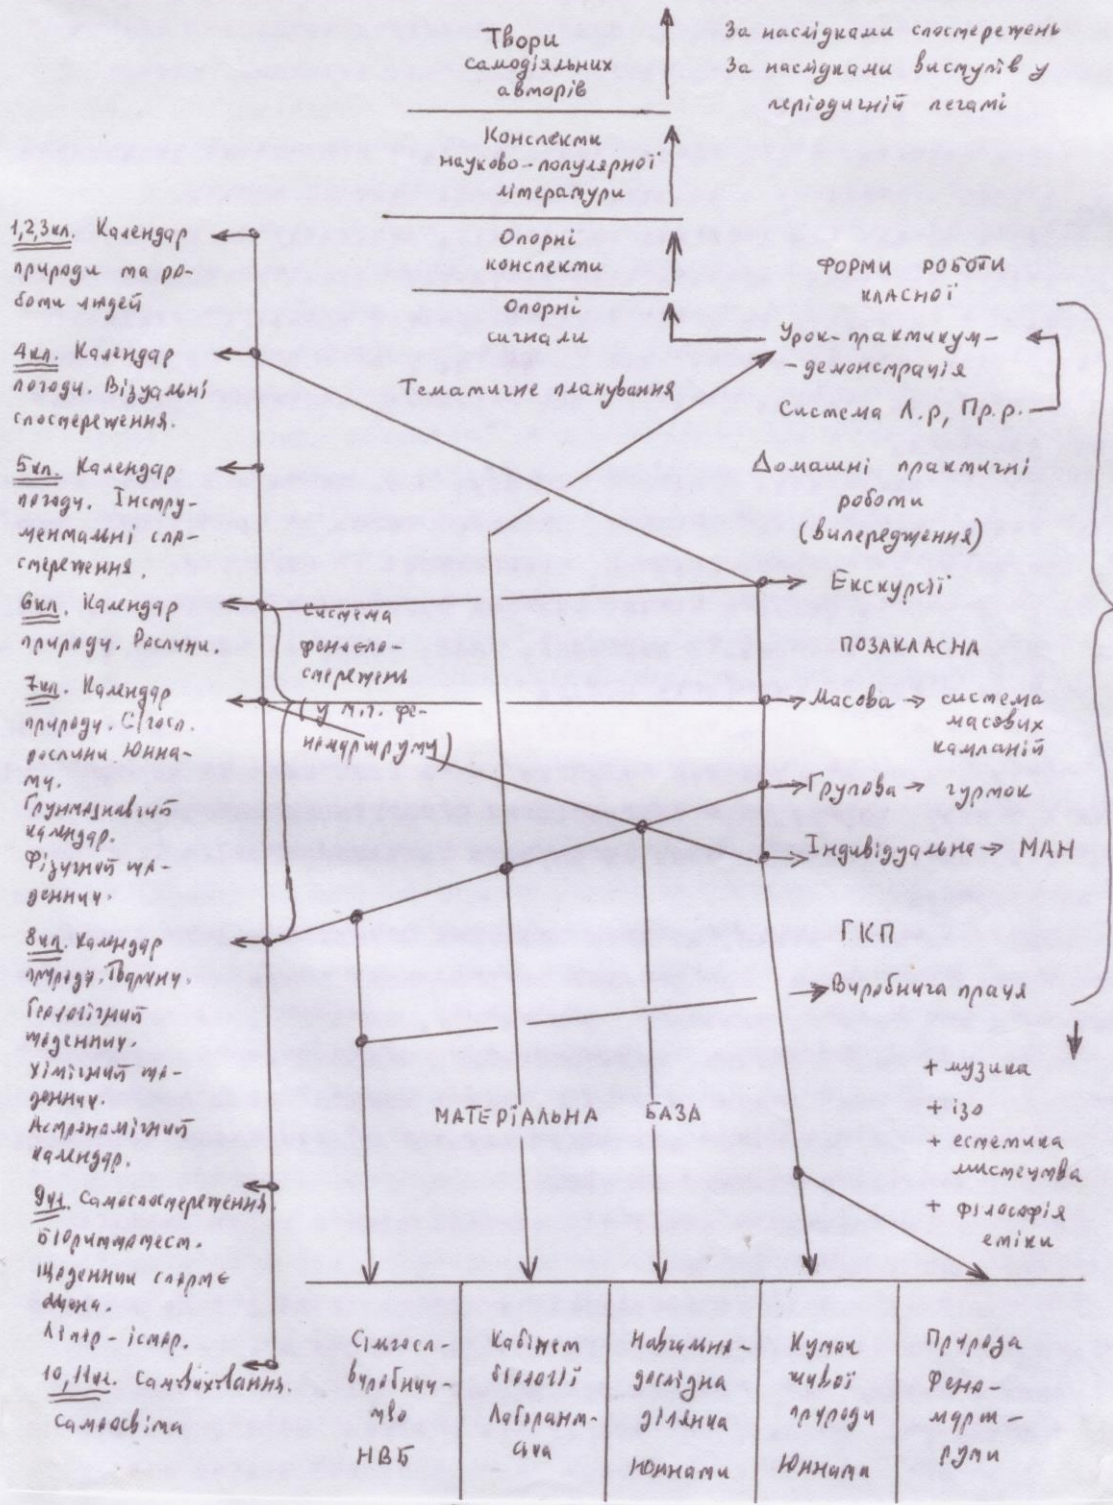 Твори
самодіяльних
авторів
За наслідками спостережень
За наслідками виступів у
періодичній печаті
Конспекти
науково-популярної
літератури
Опорні
конспекти
Опорні
сигнали
Тематичне планування
ФОРМИ РОБОТИ
КЛАСНОЇ
Урок-практикум-
-демонстрація
Система Л.р, Пр.р.
Домашні практичні
роботи
(випередження)
Екскурсії
ПОЗАКЛАСНА
Масова → система
масових
кампаній
Групова → гурток
Індивідуальна → МАН
ГКП
Виробнича праця
+ музика
+ ізо
+ естетика
мистецтва
+ філософія
етики
1,2,3кл. Календар
природи та ро-
боти людей
4кл. Календар
погоди. Візуальні
спостереження.
5кл. Календар
погоди. Інстру-
ментальні спо-
стереження.
6кл. Календар
природи. Рослини.
7кл. Календар
природи. С/госп.
рослини Юнна-
ту.
Грунтознавчий
календар.
Фізичний що-
денник.
8кл. Календар
природи. Тварини.
Геологічний
щоденник.
Хімічний що-
денник.
Астрономічний
календар.
9кл. Самоспостереження.
Біоритмотест.
Щоденник
Літер-істор.
10,11кл. Самовиховання.
Самоосвіта
Система
феноспо-
стережень
(у т.ч. фе-
номаршрути)
МАТЕРІАЛЬНА БАЗА
Сільгосп-
виробниц-
тво
НВБ
Кабінет
біології
Лаборант-
ська
Навчально-
дослідна
ділянка
Юннати
Куток
живої
природи
Юннати
Природа
Фено-
марш-
рути